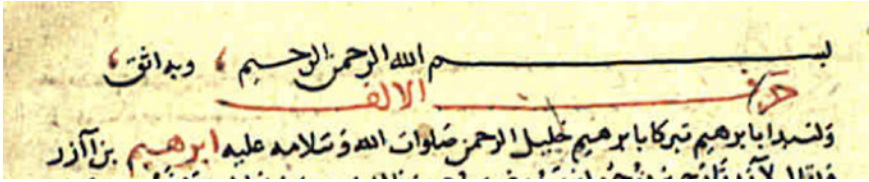 بسم الله الرحمن الرحيم ، وبه اثق ،
حرف الالف
ولنبدا بابرهيم تبركا بابرهيم خليل الرحمن صلوات الله وسلامه عليه ابرهيم بن آزر